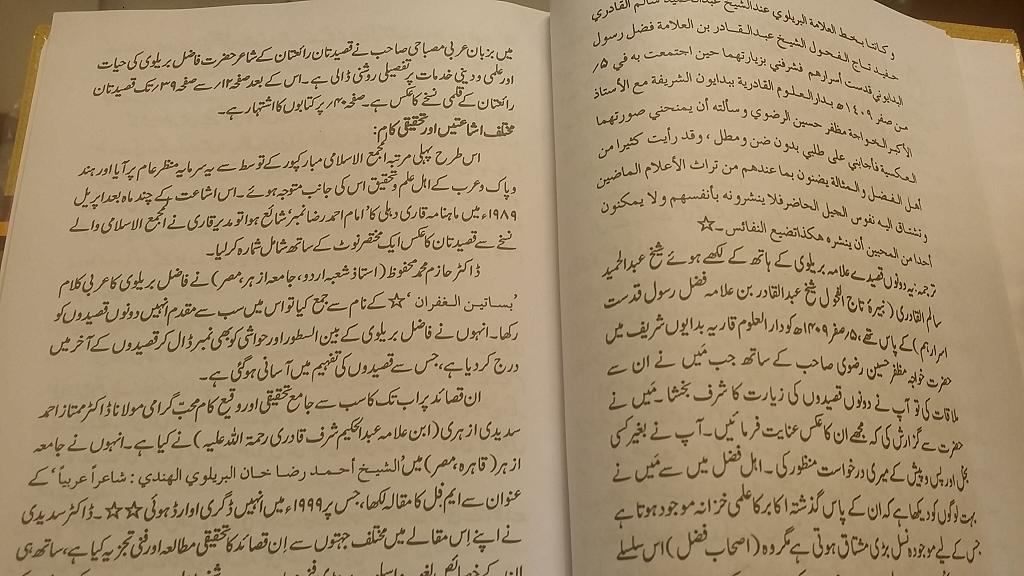 و کانتا بخط العلامة البريلوي عند الشيخ عبد الحميد سالم القادري
حفيد تاج الفحول الشيخ عبدالقادر بن العلامة فضل رسول
البدايوني قدست أسرارهم فشرفني بزيارتهما حين اجتمعت به في ۵؍
من صفر ۱۴۰۹ھ بدار العلوم القادرية ببدايون الشريفة مع الأستاذ
الأكبر الخواجة مظفر حسين الرضوي و سألته أن يمنحني صورتهما
العكسية فأجابني على طلبي بدون ضن ومطل ، و قد رأيت كثيرا من
أهل الفضل و المثالة يضنون بما عندهم من تراث الأعلام الماضين
و تشتاق اليه نفوس الجيل الحاضر فلا ينشرونه بأنفسهم ولا يمكنون
أحدا من المحبين أن ينشره هكذا تضيع النفائس۔☆
ترجمہ: یہ دونوں قصیدے علامہ بریلوی کے ہاتھ کے لکھے ہوئے شیخ عبدالحمید
سالم القادری (نبیرۂ تاج الفحول شیخ عبدالقادر بن علامہ فضل رسول قدست
اسرارہم) کے پاس تھے، ۵؍صفر ۱۴۰۹ھ کو دارالعلوم قادریہ بدایوں شریف میں
حضرت خواجہ مظفر حسین رضوی صاحب کے ساتھ جب میں نے ان سے
ملاقات کی تو آپ نے دونوں قصیدوں کی زیارت کا شرف بخشا۔ میں نے
حضرت سے گزارش کی کہ مجھے ان کا عکس عنایت فرمائیں۔ آپ نے بغیر کسی
بخل اور پس و پیش کے میری درخواست منظور کی۔ اہل فضل میں سے میں نے
بہت لوگوں کو دیکھا ہے کہ ان کے پاس گذشتہ اکابر کا علمی خزانہ موجود ہوتا ہے
جس کے لیے موجودہ نسل بڑی مشتاق ہوتی ہے مگر وہ (اصحاب فضل) اس سلسلے
میں بزبان عربی مصباحی صاحب نے قصیدتان رائعتان کے شاعر حضرت فاضل بریلوی کی حیات
اور علمی و دینی خدمات پر تفصیلی روشنی ڈالی ہے۔ اس کے بعد صفحہ ۱۲؍ سے صفحہ ۳۹؍ تک قصیدتان
رائعتان کے قلمی نسخے کا عکس ہے۔ صفحہ ۴۰؍ پر کتابوں کا اشتہار ہے۔
مختلف اشاعتیں اور تحقیقی کام:
اس طرح پہلی مرتبہ المجمع الاسلامی مبارکپور کے توسط سے یہ سرمایہ منظر عام پر آیا اور ہند
و پاک و عرب کے اہل علم و تحقیق اس کی جانب متوجہ ہوئے۔ اس اشاعت کے چند ماہ بعد اپریل
۱۹۸۹ء میں ماہنامہ قاری دہلی کا 'امام احمد رضا نمبر' شائع ہوا تو مدیر قاری نے المجمع الاسلامی والے
نسخے سے قصیدتان کا عکس ایک مختصر نوٹ کے ساتھ شامل شمارہ کر لیا۔
ڈاکٹر حازم محمد محفوظ (استاذ شعبہ اردو، جامعہ ازہر، مصر) نے فاضل بریلوی کا عربی کلام
'بساتین الغفران'☆ کے نام سے جمع کیا تو اس میں سب سے مقدم انہیں دونوں قصیدوں کو
رکھا۔ انہوں نے فاضل بریلوی کے بین السطور اور حواشی کو بھی نمبر ڈال کر قصیدوں کے آخر میں
درج کر دیا ہے، جس سے قصیدوں کی تفہیم میں آسانی ہو گئی ہے۔
ان قصائد پر اب تک کا سب سے جامع تحقیقی اور وقیع کام محب گرامی مولانا ڈاکٹر ممتاز احمد
سدیدی ازہری (ابن علامہ عبدالحکیم شرف قادری رحمۃ اللہ علیہ) نے کیا ہے۔ انہوں نے جامعہ
ازہر (قاہرہ، مصر) میں 'الشيخ أحمد رضا خان البريلوي الهندي: شاعراً عربياً' کے
عنوان سے ایم فل کا مقالہ لکھا، جس پر ۱۹۹۹ء میں انہیں ڈگری اوارڈ ہوئی☆☆۔ ڈاکٹر سدیدی
نے اپنے اس مقالے میں مختلف جہتوں سے ان قصائد کا تحقیقی مطالعہ اور فنی تجزیہ کیا ہے، ساتھ ہی